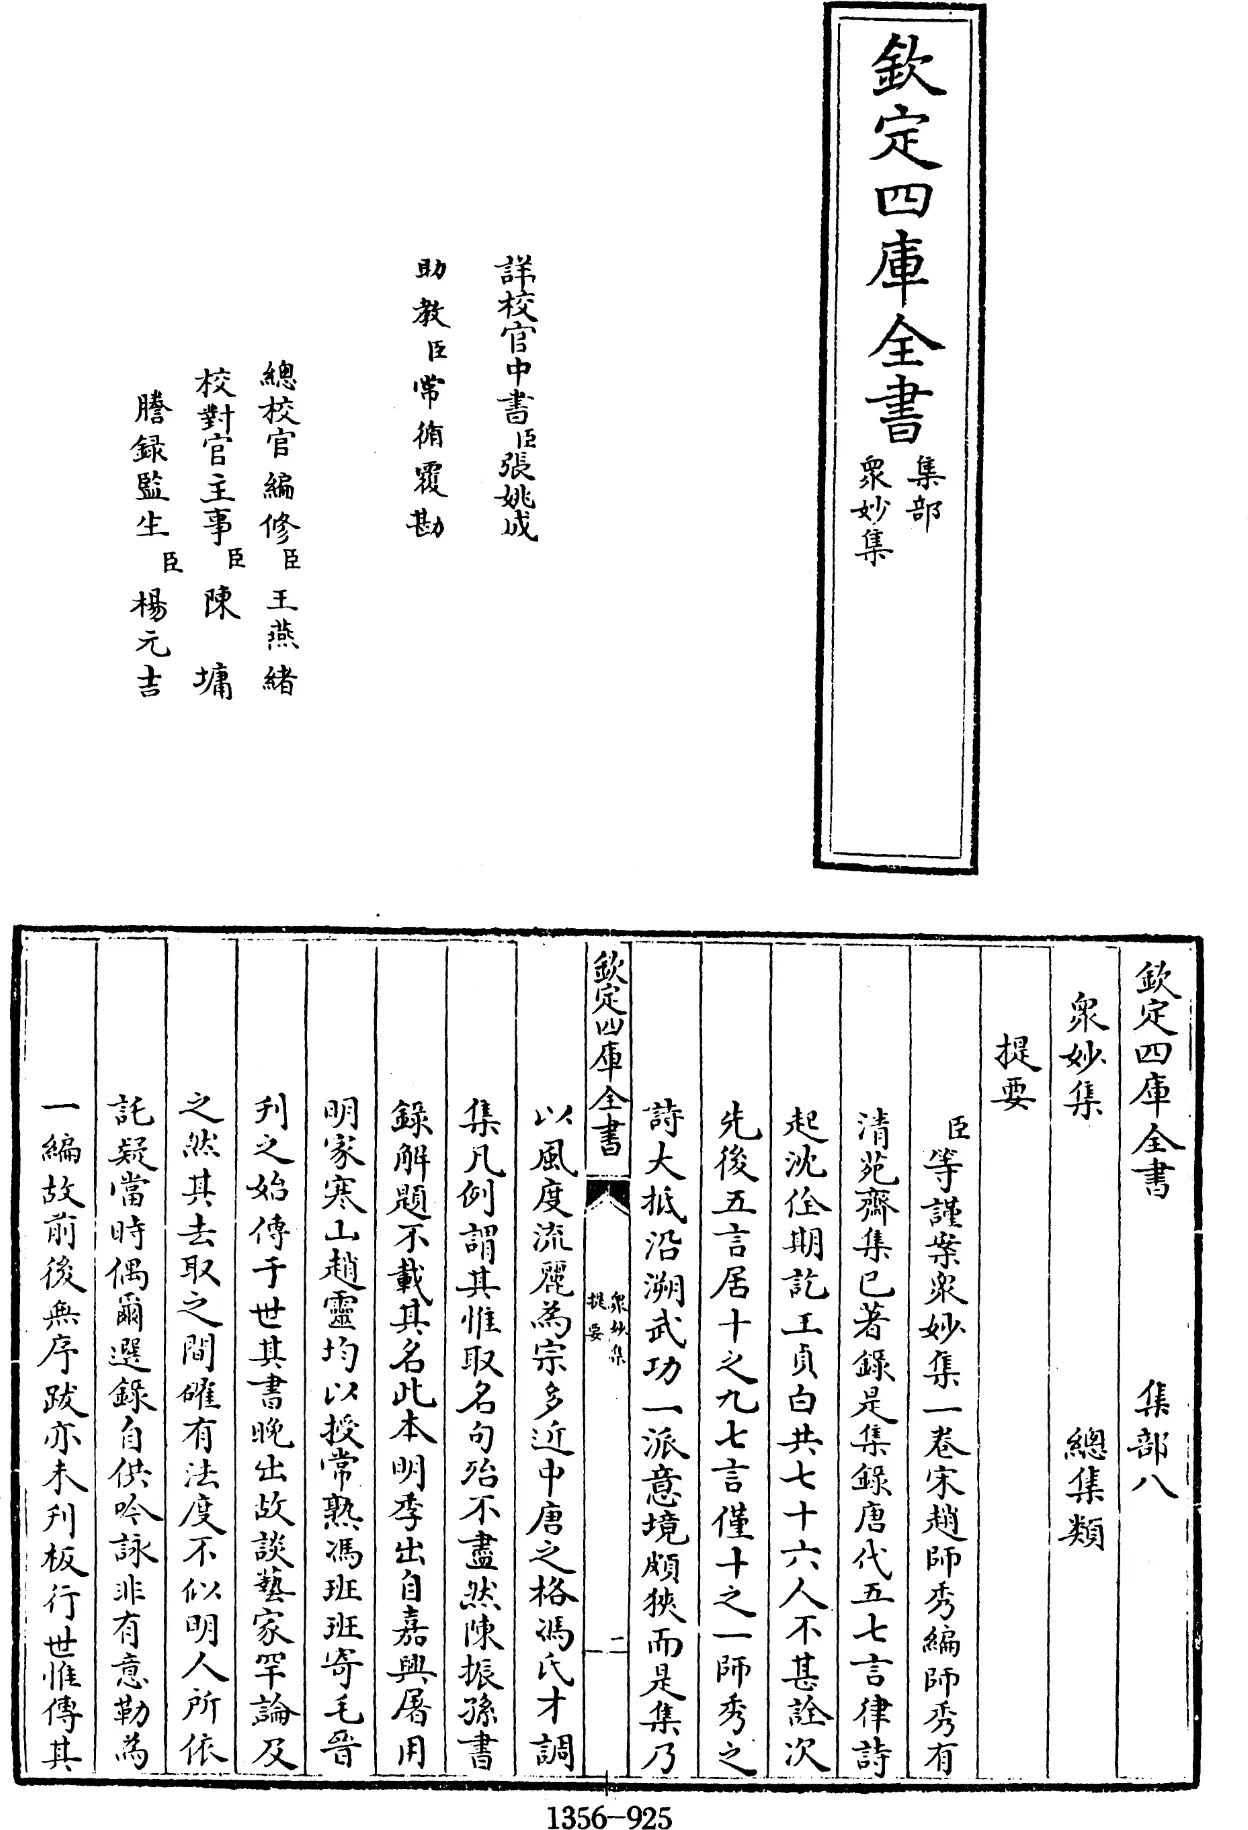 欽定四庫全書
集部
衆妙集
詳校官中書臣張姚成
助教臣常循覆勘
總校官編修臣王燕緒
校對官主事臣陳墉
謄録監生臣楊元吉
欽定四庫全書 集部八
衆妙集 總集類
提要
臣等謹案衆妙集一卷宋趙師秀編師秀有
清苑齋集已著録是集録唐代五七言律詩
起沈佺期訖王貞白共七十六人不甚詮次
先後五言居十之九七言僅十之一師秀之
詩大抵沿溯武功一派意境頗狹而是集乃
欽定四庫全書
衆妙集
提要
二
一
以風度流麗為宗多近中唐之格馮氏才調
集凡例謂其惟取名句殆不盡然陳振孫書
録解題不載其名此本明季出自嘉興屠用
明家寒山趙靈均以授常熟馮班班寄毛晉
刋之始傳于世其書晚出故談藝家罕論及
之然其去取之間確有法度不似明人所依
託疑當時偶爾選録自供吟詠非有意勒為
一編故前後無序跋亦未刋板行世惟傳其
1356-925